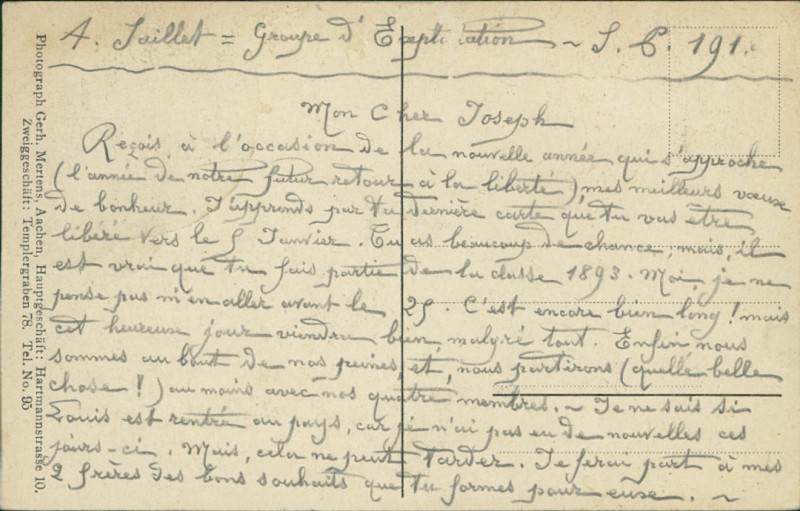 A. Jaillet = Groupe d'Exploitation ~ S. P. 191.
Mon Cher Joseph
Reçois, à l'occasion de la nouvelle année qui s'approche
(l'année de notre futur retour à la liberté), mes meilleurs vœux
de bonheur. J'apprends par ta dernière carte que tu vas être
libéré vers le 5 Janvier. Tu as beaucoup de chance, mais, il
est vrai que tu fais partie de la classe 1893. Moi, je ne
pense pas m'en aller avant le 25. C'est encore bien long! mais
cet heureux jour viendra bien, malgré tout. Enfin nous
sommes au bout de nos peines, et, nous partirons (quelle belle
chose!) au moins avec nos quatre membres. ~ Je ne sais si
Louis est rentré au pays, car je n'ai pas eu de nouvelles ces
jours-ci. Mais, cela ne peut tarder. Je ferai part à mes
2 frères des bons souhaits que tu formes pour eux. ~
Photograph Gerh. Mertens, Aachen, Hauptgeschäft: Hartmannstrasse 10.
Zweiggeschäft: Templergraben 78. Tel. No. 95